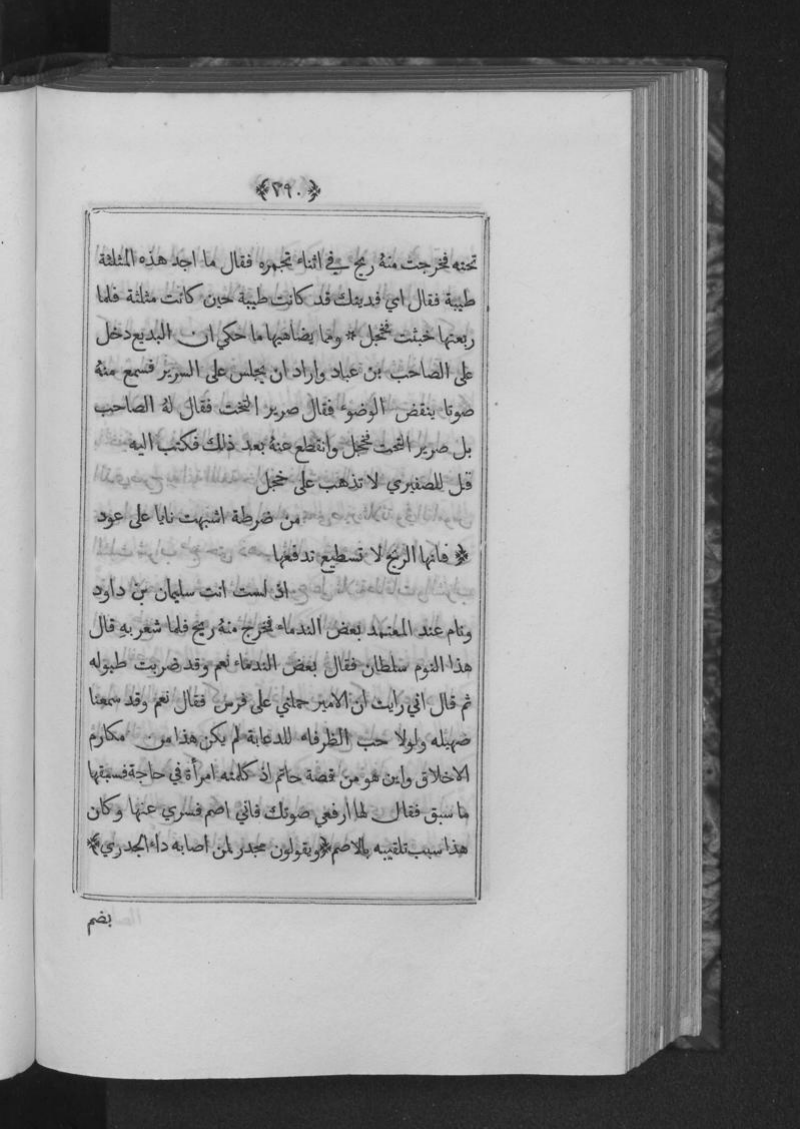 ﴿٢٩٠﴾
تحته فخرجت منهُ ريح في اثناء تجمره فقال ما اجد هذه المثلثة
طيبة فقال اي فديتك قد كانت طيبة حين كانت مثلثة فلما
ربعتها خبثت فخجل * ومما يضاهيها ما حكي ان البديع دخل
على الصاحب بن عباد واراد ان يجلس على السرير فسمع منهُ
صوتا ينقض الوضوء فقال صرير التخت فقال لهُ الصاحب
بل صرير التحت فخجل وانقطع عنهُ بعد ذلك فكتب اليه
قل للصفيري لا تذهب على خجل
من ضرطة اشبهت نايا على عود
﴿ فانها الريح لا تسطيع تدفعها
اذ لست انت سليمان بن داود
ونام عند المعتمد بعض الندماء فخرج منهُ ريح فلما شعر بهِ قال
هذا النوم سلطان فقال بعض الندماء نعم وقد ضربت طبوله
ثم قال اني رايت ان الامير حملني على فرس فقال نعم وقد سمعنا
صهيله ولولا حب الظرفاء للدعابة لم يكن هذا من مكارم
الاخلاق واين هو من قصة حاتم اذ كلمته امرأة في حاجة فسبقها
ما سبق فقال لها ارفعي صوتك فاني اصم فسري عنها وكان
هذا سبب تلقيبه بالاصم ﴿ويقولون مجدر لمن اصابه داء الجدري﴾
بضم